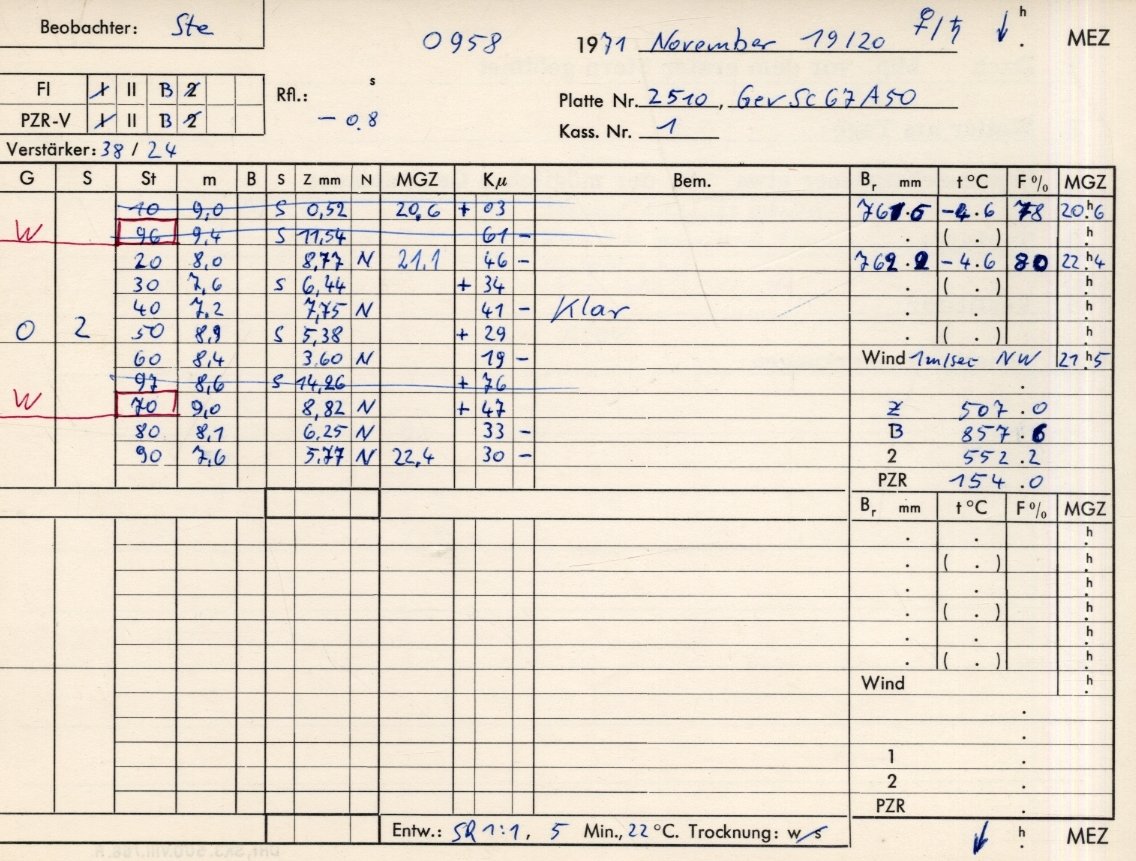 Beobachter: Ste
0958 1971 November 19/20 ♀/♄ ↓ h . MEZ
FI I II B 2
PZR-V I II B 2
Rfl.: s
- 0.8
Platte Nr. 2510, GevSc67A50
Kass. Nr. 1
Verstärker: 38 / 24
G S St m B S Z mm N MGZ Kµ Bem. Br mm t °C F % MGZ
10 9,0 S 0,52 20,6 + 03 761.5 -4.6 78 20h.6
W 96 9,4 S 11,54 61 - . ( . ) h.
20 8,0 8,77 N 21,1 46 - 762.2 -4.6 80 22h.4
30 7,6 S 6,44 + 34 . ( . ) h.
40 7,2 7,75 N 41 - Klar . . h.
O 2 50 8,9 S 5,38 + 29 . ( . ) h.
60 8,4 3,60 N 19 - Wind 1m/sec NW 21h.5
97 8,6 S 14,26 + 76 .
W 70 9,0 8,82 N + 47 Z 507.0
80 8,1 6,25 N 33 - B 857.6
90 7,6 5,77 N 22,4 30 - 2 552.2
PZR 154.0
Br mm t °C F % MGZ
. . h.
. ( . ) h.
. . h.
. ( . ) h.
. . h.
. ( . ) h.
Wind h.
.
.
1 .
2 .
PZR .
Entw.: SR 1:1, 5 Min., 22 °C. Trocknung: w s ↓ h . MEZ